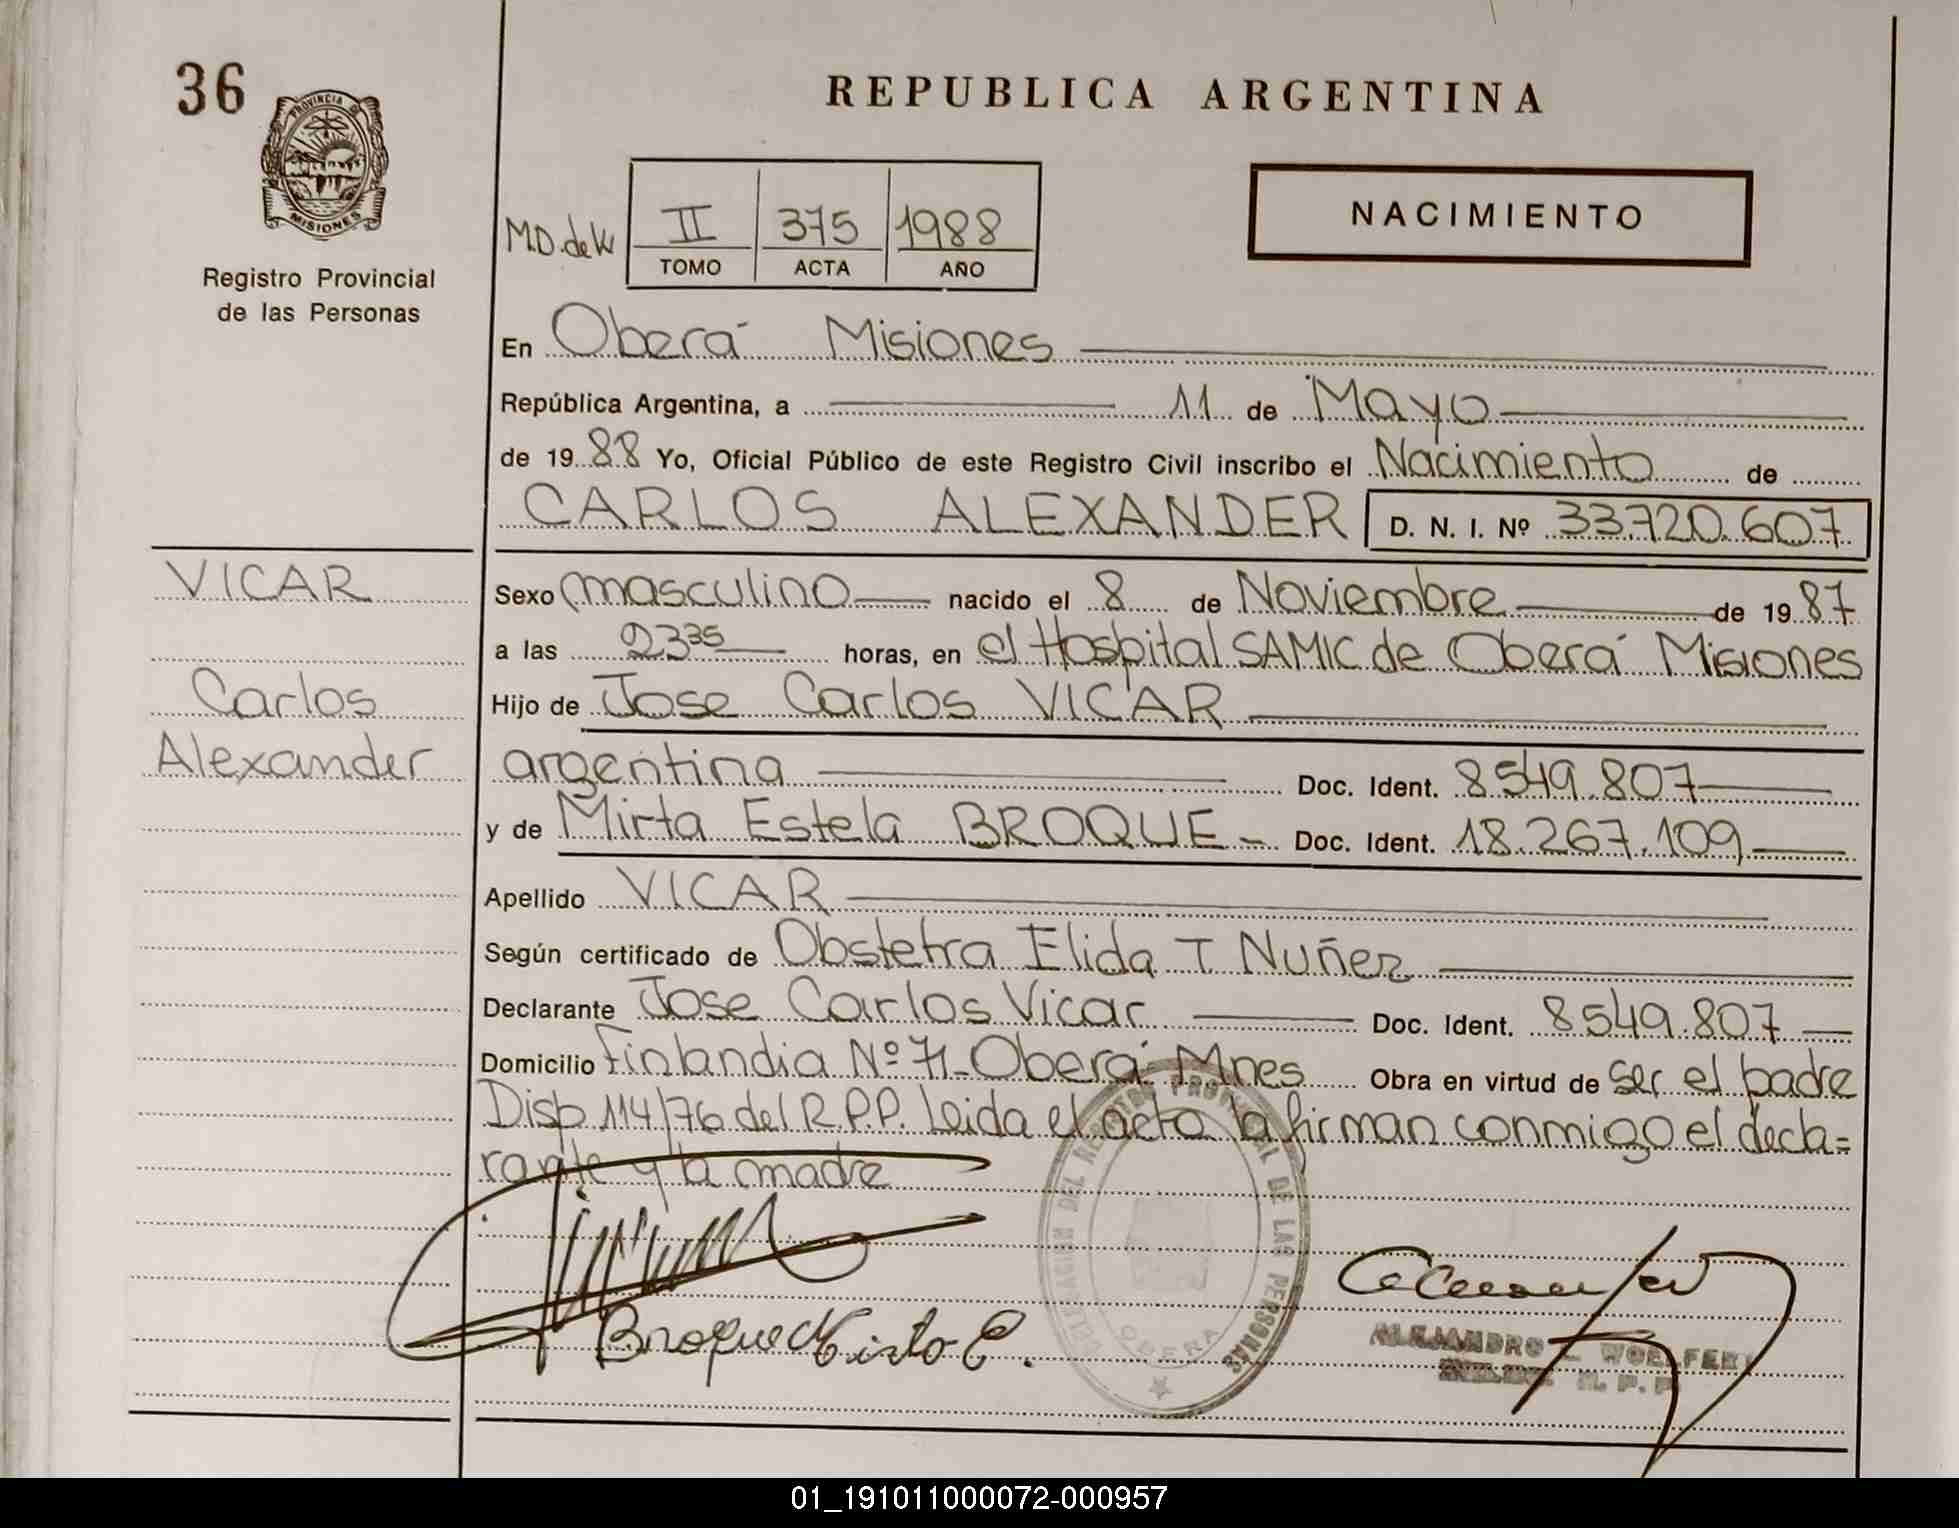 36
REPUBLICA ARGENTINA
PROVINCIA DE
MISIONES
Registro Provincial
de las Personas
M.D. de
II 375 1988
TOMO ACTA AÑO
NACIMIENTO
En Oberá Misiones
República Argentina, a 11 de Mayo
de 1988 Yo, Oficial Público de este Registro Civil inscribo el Nacimiento de
CARLOS ALEXANDER D. N. I. Nº 33.720.607
VICAR
Carlos
Alexander
Sexo masculino nacido el 8 de Noviembre de 1987
a las 23 35 horas, en el Hospital SAMIC de Oberá Misiones
Hijo de Jose Carlos VICAR
argentina Doc. Ident. 8.549.807
y de Mirta Estela BROQUE - Doc. Ident. 18.267.109
Apellido VICAR
Según certificado de Obstetra Elida T Nuñez
Declarante Jose Carlos Vicar Doc. Ident. 8.549.807
Domicilio Finlandia Nº 71 - Oberá Mnes Obra en virtud de ser el padre
Disp 114/76 del R.P.P. Leida el acta la firman conmigo el decla=
rante y la madre
DEL REGISTRO PROVINCIAL DE LAS PERSONAS
OBERA
Broque Mirta E.
ALEJANDRO WOELFERT
R. P. P.
01_191011000072-000957